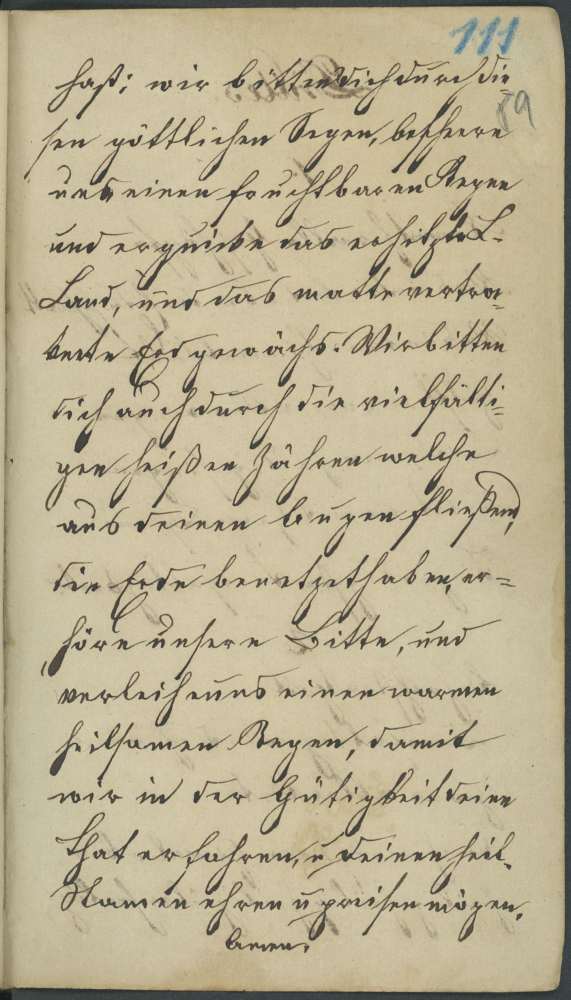 111
89
hast; wir bitten dich durch die
sen göttlichen Segen, beschere
uns einen fruchtbaren Regen
und erquicke das erhitzte L.
Land, und das matte vertro¬
knete Erdgewächs. Wir bitten
dich auch durch die vielfälti=
gen heißen Zähren welche
aus deinen Augen fließend,
die Erde benetzet haben, er=
höre unsere Bitte, und
verleih uns einen warmen
heilsamen Regen, damit
wir in der Gütigkeit deine
That erfahren, u deinen heil.
Namen ehren u preisen mögen.
Amen.